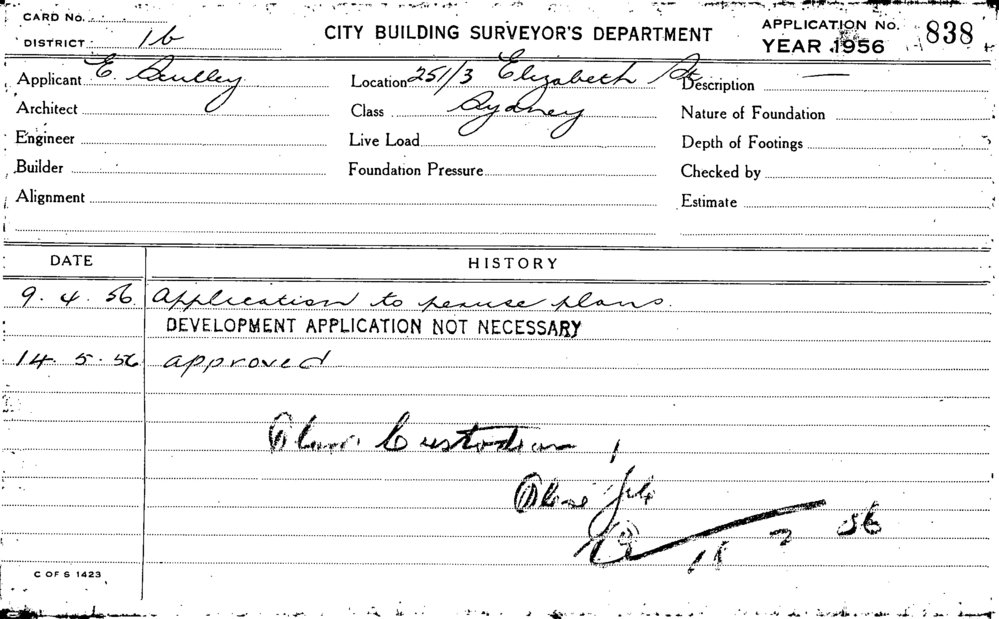 CARD No.
CITY BUILDING SURVEYOR'S DEPARTMENT
APPLICATION No. 838
DISTRICT 1b
YEAR 1956
Applicant E.
Location 251/3 Elizabeth St
Description —
Architect
Class Sydney
Nature of Foundation
Engineer
Live Load
Depth of Footings
Builder
Foundation Pressure
Checked by
Alignment
Estimate
DATE HISTORY
9. 4. 56 Application to peruse plans.
DEVELOPMENT APPLICATION NOT NECESSARY
14. 5. 56 approved
Plan Custodian,
Please file
56
C OF S 1423